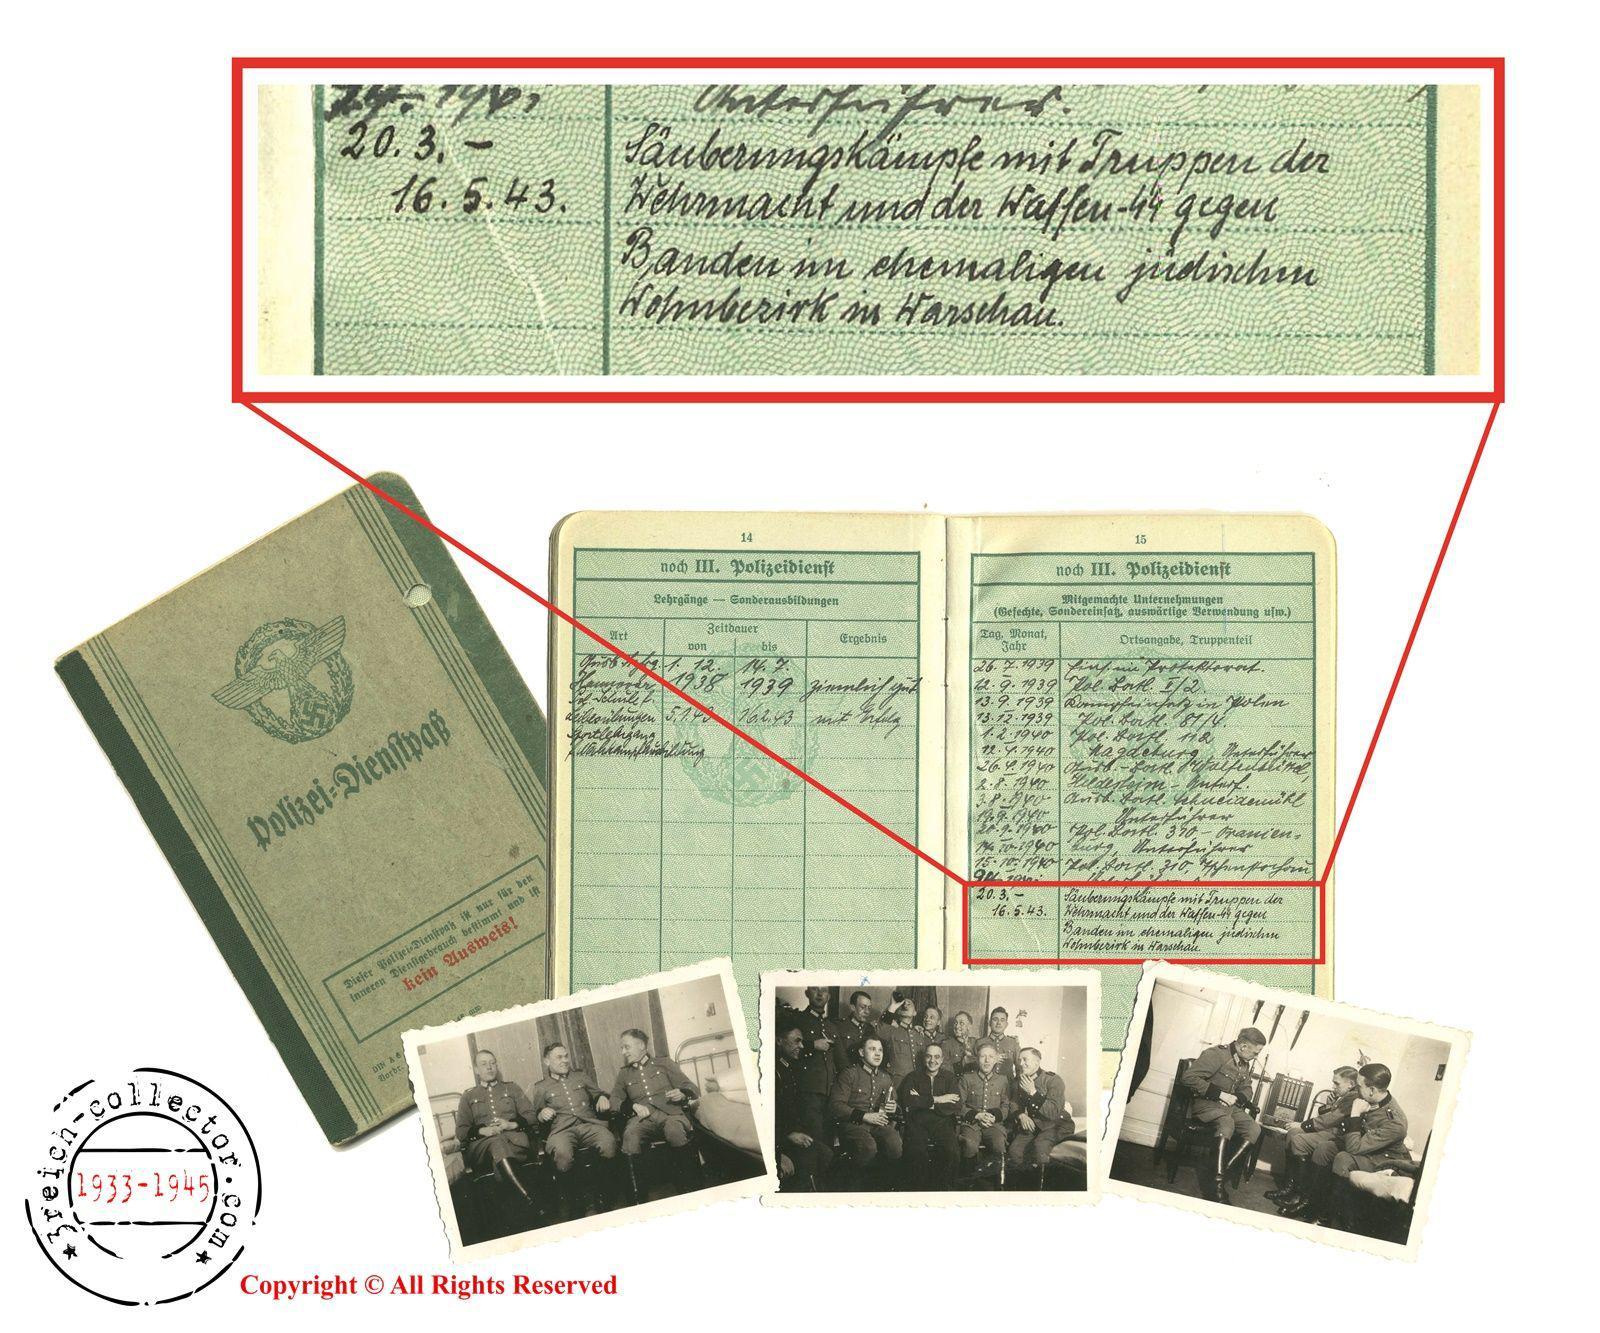 Unterführer.
20. 3. – Säuberungskämpfe mit Truppen der
16. 5. 43. Wehrmacht und der Waffen-SS gegen
Banden im ehemaligen jüdischen
Wohnbezirk in Warschau.
Polizei-Dienstpaß
Dieser Polizei-Dienstpaß ist nur für den
inneren Dienstgebrauch bestimmt und ist
kein Ausweis!
14
noch III. Polizeidienst
Lehrgänge — Sonderausbildungen
Art Zeitdauer Ergebnis
von bis
1. 12. 14. 7.
Hannover 1938 1939 ziemlich gut
5.1.43 16.2.43 mit Erfolg
15
noch III. Polizeidienst
Mitgemachte Unternehmungen
(Gefechte, Sondereinsatz, auswärtige Verwendung usw.)
Tag, Monat, Jahr Ortsangabe, Truppenteil
26. 7. 1939 Eins. im Protektorat.
12. 9. 1939 Pol. Batl. I/2.
13. 9. 1939 Kampfeinsatz in Polen
13. 12. 1939 Pol. Batl.
1. 2. 1940 Pol. Batl.
12. 4. 1940 Magdeburg Unterführer
26. 4. 1940
2. 8. 1940 Hildesheim - Unterf.
3. 8. 1940 Ausb. Batl. Schneidemühl
19. 9. 1940 Unterführer
20. 9. 1940 Pol. Batl. 310, - Oranien-
14. 10. 1940 burg, Unterführer
15. 10. 1940 Pol. Batl. 310, Tschenstochau
20. 3. – Säuberungskämpfe mit Truppen der
16. 5. 43. Wehrmacht und der Waffen-SS gegen
Banden im ehemaligen jüdischen
Wohnbezirk in Warschau.
3reich-collector.com
1933-1945
Copyright © All Rights Reserved